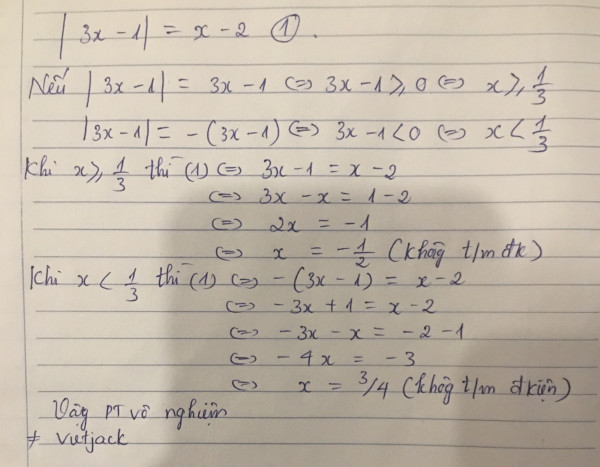 |3x - 1| = x - 2 ①.
Nếu |3x - 1| = 3x - 1 <=> 3x - 1 ⩾ 0 <=> x ⩾ 1/3
|3x - 1| = -(3x - 1) <=> 3x - 1 < 0 <=> x < 1/3
Khi x ⩾ 1/3 thì (1) <=> 3x - 1 = x - 2
<=> 3x - x = 1 - 2
<=> 2x = -1
<=> x = -1/2 (không t/m đk)
Khi x < 1/3 thì (1) <=> -(3x - 1) = x - 2
<=> -3x + 1 = x - 2
<=> -3x - x = -2 - 1
<=> -4x = -3
<=> x = 3/4 (không t/m đkiện)
Vậy PT vô nghiệm
# vietjack